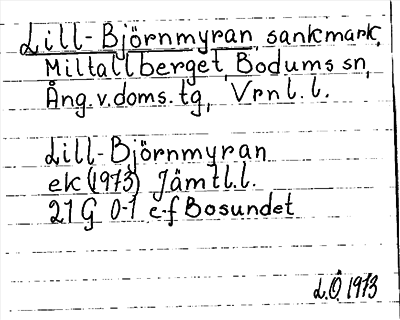 Lill-Björnmyran, sankmark,
Miltallberget, Bodums sn,
Ång.v.doms.tg, Vrnl.l.
Lill-Björnmyran
ek (1973) Jämtl.l.
21 G 0-1 e-f Bosundet
L.Ö. 1973